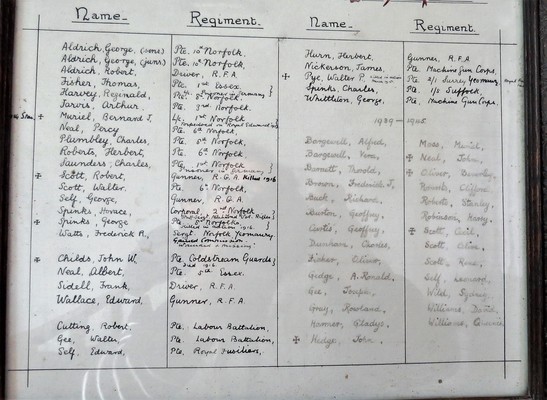 Name. Regiment. Name. Regiment.
Aldrich, George. (sens) Pte. 10th Norfolk.
Aldrich, George. (junr) Pte. 10th Norfolk.
Aldrich, Robert. Driver, R.F.A.
Fisher, Thomas, Pte. 1st Essex.
Harvey, Reginald, Pte. Norfolk.
Jarvis, Arthur. Pte. 3rd Norfolk.
✠ Muriel, Bernard J. L/c. 1st Norfolk
Neal, Percy Pte. 6th Norfolk.
Plumbley, Charles, Pte. 5th Norfolk.
Roberts, Herbert, Pte. 6th Norfolk.
Saunders, Charles, Pte. 1st Norfolk
Prisoner in Germany
✠ Scott, Robert, Gunner, R.G.A. Killed 1916
Scott, Walter. Pte. 6th Norfolk.
Self, George, Gunner, R.G.A.
Spinks, Horace, Corporal 2nd Norfolk
✠ Spinks, George Pte. Norfolk.
Watts, Frederick R., Sergt. Norfolk Yeomanry
Gained Commission.
✠ Childs, John W. Pte. Coldstream Guards
Neal, Albert, Pte. 5th Essex.
Sidell, Frank, Driver, R.F.A.
Wallace, Edward, Gunner, R.F.A.
Cutting, Robert, Pte. Labour Battalion,
Gee, Walter, Pte. Labour Battalion,
Self, Edward, Pte. Royal Fusiliers,
Hurn, Herbert, Gunner, R.F.A
Nickerson, James, Pte. Machine Gun Corps,
✠ Pye, Walter P. Pte. 2/1 Surrey Yeomanry
Spinks, Charles, Pte. 1/5 Suffolk,
Whittleton, George, Pte. Machine Gun Corps,
1939 – 1945
Bargewell, Alfred, Moss, Muriel,
Bargewell, Vera, ✠ Neal, John,
Barnett, Thorold, ✠ Oliver, Beverley,
Brown, Frederick J, Rounce, Clifford
Buck, Richard, Roberts, Stanley
Burton, Geoffrey, Robinson, Harry,
Curtis, Geoffrey ✠ Scott, Cecil,
Dunham, Charles, Scott, Olive,
Fisher, Oliver, Scott, Rose,
Gidge, A. Ronald, Self, Leonard,
Gee, Joupe, Wild, Sydney,
Gray, Rowland, Williams, David,
Harmer, Gladys, Williams,
✠ Hedge, John,